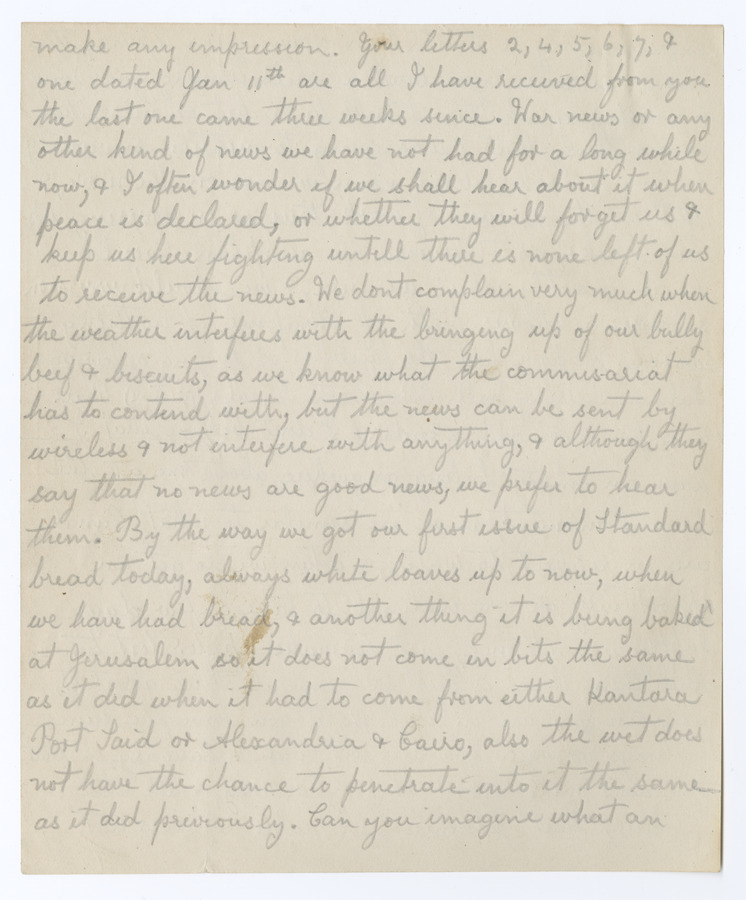 make any impression. Your letters 2, 4, 5, 6, 7, &
one dated Jan 11th are all I have received from you
the last one came three weeks since. War news or any
other kind of news we have not had for a long while
now, & I often wonder if we shall hear about it when
peace is declared, or whether they will forget us &
keep us here fighting untill there is none left of us
to receive the news. We dont complain very much when
the weather interferes with the bringing up of our bully
beef & biscuits, as we know what the commisariat
has to contend with, but the news can be sent by
wireless & not interfere with anything, & although they
say that no news are good news, we prefer to hear
them. By the way we got our first issue of Standard
bread today, always white loaves up to now, when
we have had bread, & another thing it is being baked
at Jerusalem so it does not come in bits the same
as it did when it had to come from either Kantara
Port Said or Alexandria & Cairo, also the wet does
not have the chance to penetrate into it the same
as it did previously. Can you imagine what an